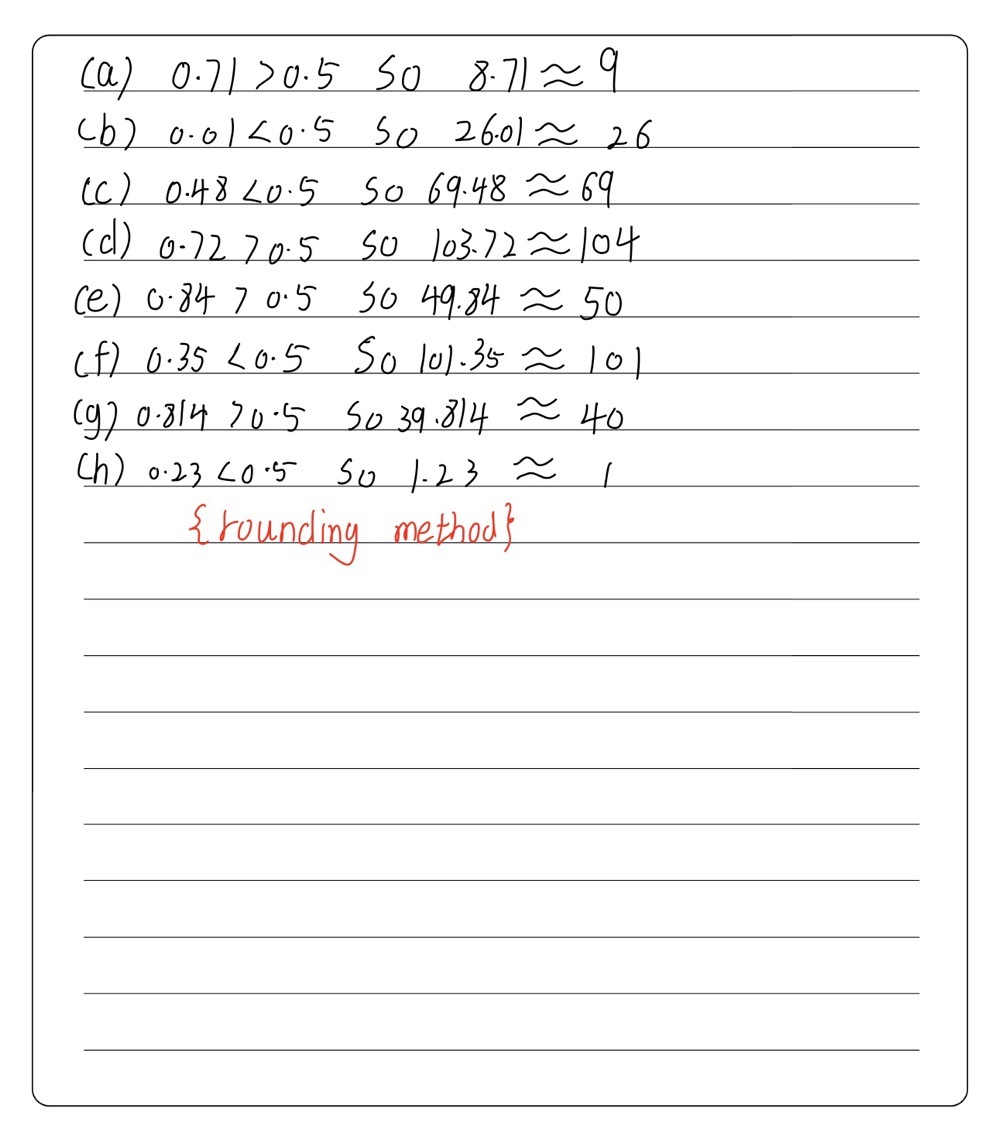 (a) 0.71 > 0.5 So 8.71 ≈ 9
(b) 0.01 < 0.5 So 26.01 ≈ 26
(c) 0.48 < 0.5 So 69.48 ≈ 69
(d) 0.72 > 0.5 So 103.72 ≈ 104
(e) 0.84 > 0.5 So 49.84 ≈ 50
(f) 0.35 < 0.5 So 101.35 ≈ 101
(g) 0.814 > 0.5 So 39.814 ≈ 40
(h) 0.23 < 0.5 So 1.23 ≈ 1
{rounding method}